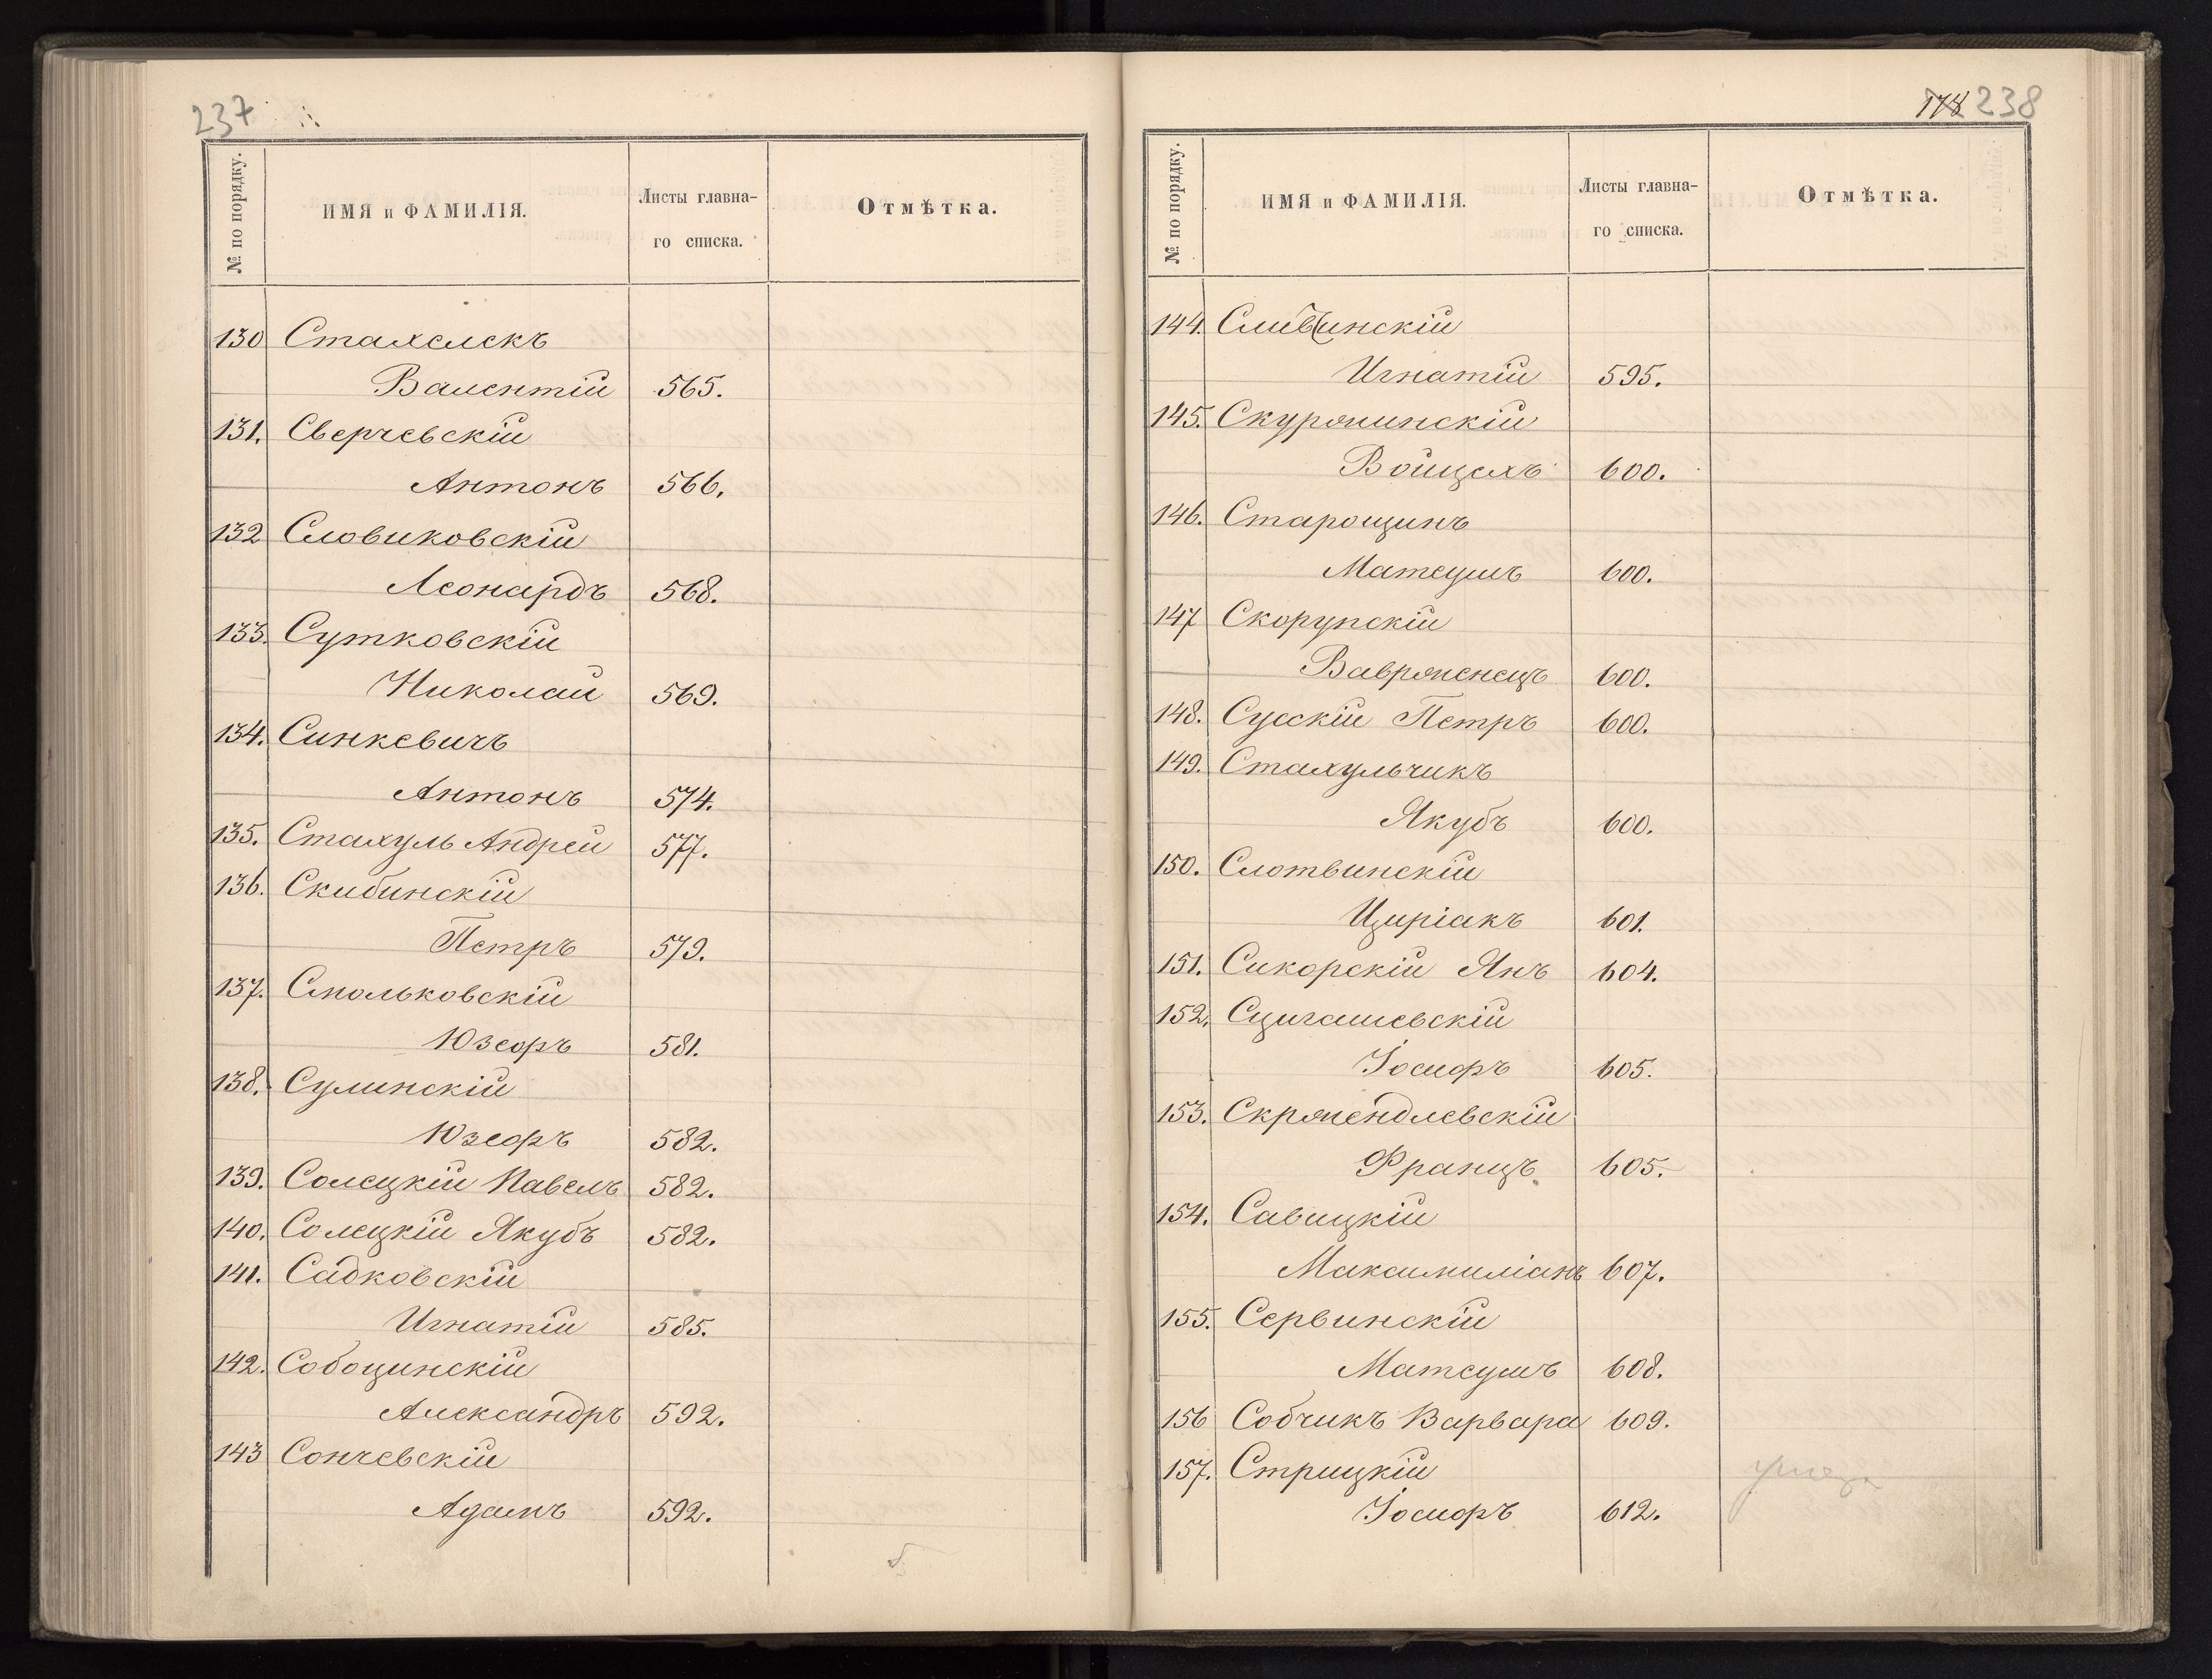 237
№ по порядку.
ИМЯ и ФАМИЛІЯ.
Листы главна-
го списка.
Отмѣтка.
130 Стахелекъ
Валентій 565.
131. Сверчевскій
Антонъ 566.
132 Словиковскій
Леонардъ 568.
133. Сутковскій
Николай 569.
134. Синкевичъ
Антонъ 574.
135. Стахуль Андрей 577.
136. Скибинскій
Петръ 579.
137. Смольковскій
Юзефъ 581.
138. Сулинскій
Юзефъ 582.
139. Солецкій Павелъ 582.
140. Солецкій Якубъ 582.
141. Садковскій
Игнатій 585.
142. Собоцинскій
Александръ 592.
143 Сончевскій
Адамъ 592.
178 238
№ по порядку.
ИМЯ и ФАМИЛІЯ.
Листы главна-
го списка.
Отмѣтка.
144. Сливинскій
Игнатій 595.
145. Скуржинскій
Войцехъ 600.
146. Старощикъ
Матеушъ 600.
147 Скорупскій
Ваврженецъ 600.
148. Сусскій Петръ 600.
149. Стахульчикъ
Якубъ 600.
150. Слотвинскій
Циріакъ 601.
151. Сикорскій Янъ 604.
152. Сцигашевскій
Іосифъ 605.
153. Скржендлевскій
Францъ 605.
154. Савицкій
Максимиліанъ 607.
155. Сервинскій
Матеушъ 608.
156 Собчикъ Варвара 609.
157. Стрицкій
Іосифъ 612.